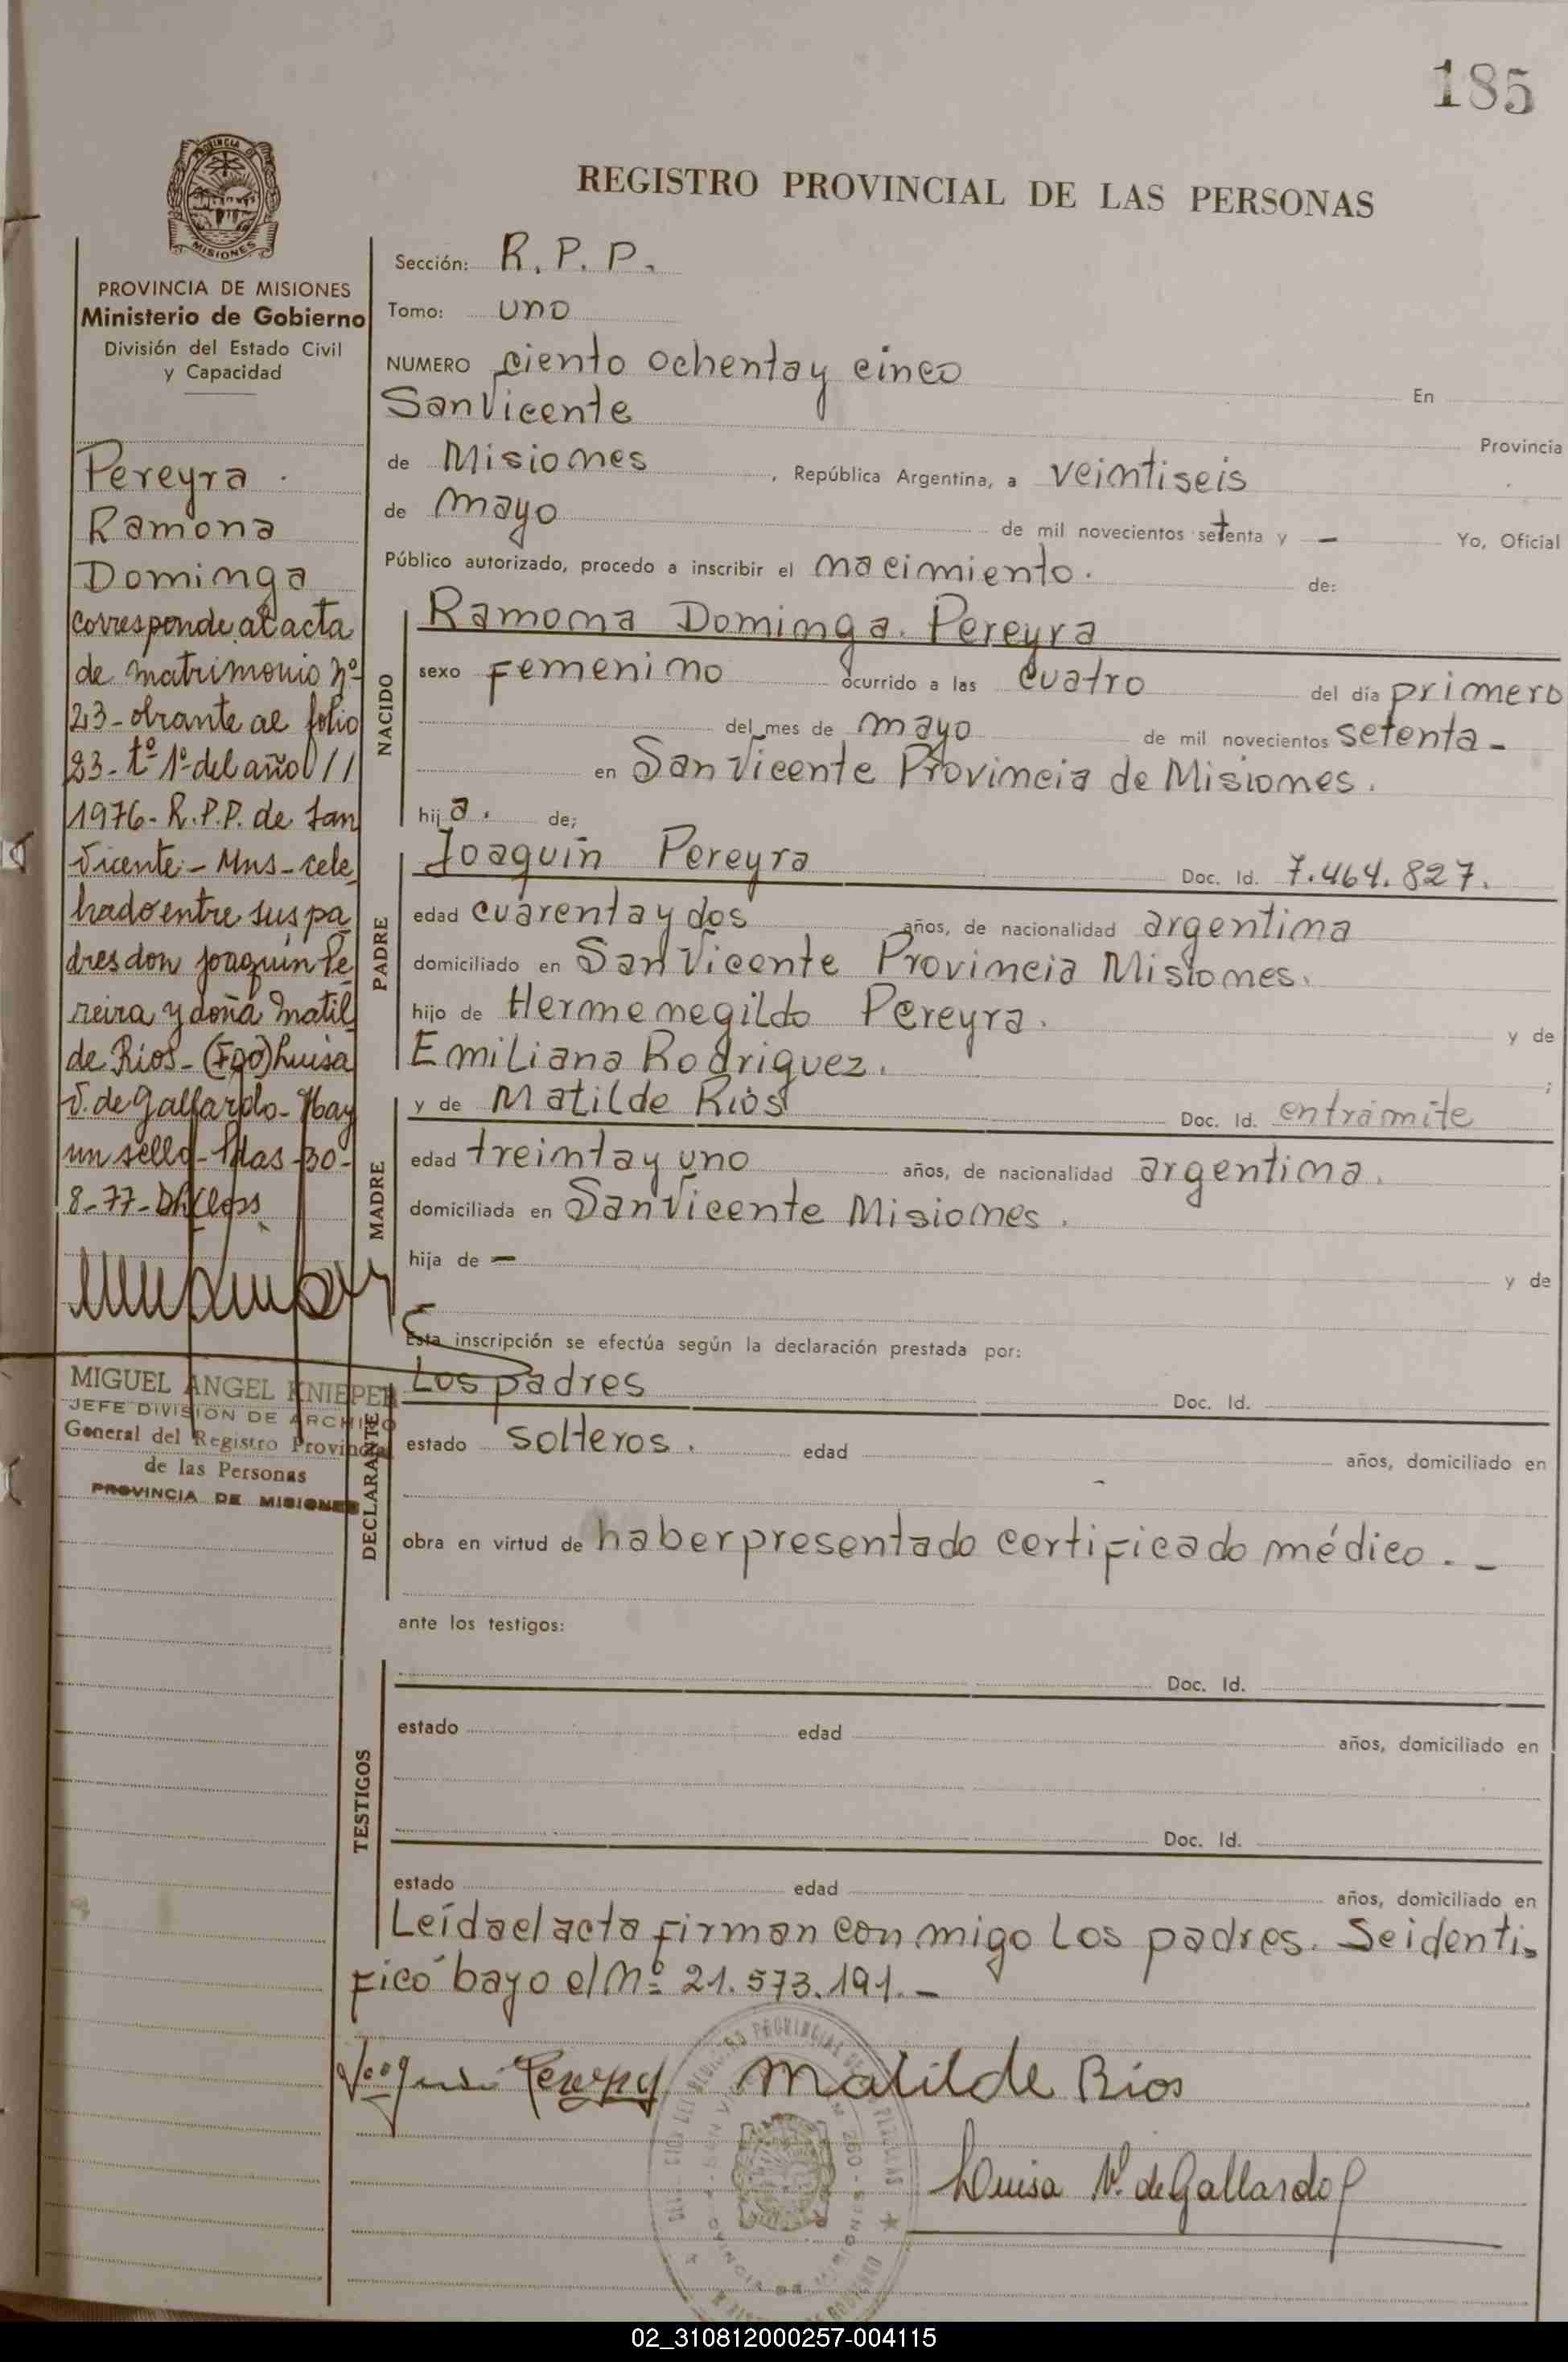 185
PROVINCIA DE
MISIONES
REGISTRO PROVINCIAL DE LAS PERSONAS
PROVINCIA DE MISIONES
Ministerio de Gobierno
División del Estado Civil
y Capacidad
Pereyra
Ramona
Dominga
corresponde al acta
de matrimonio nº
23- obrante al folio
23- tº 1º del año //
1976- R.P.P. de San
Vicente- Mns- cele
brado entre sus pa
dres don Joaquín Pe
reira y doña Matil
de Rios- (Fdo) Luisa
V. de Gallardo- Hay
un sello- Pdas -30-
8-77-
MIGUEL ANGEL KNIEPER
JEFE DIVISION DE ARCHIVO
General del Registro Provincial
de las Personas
PROVINCIA DE MISIONES
Sección: R. P. P.
Tomo: uno
NUMERO ciento ochenta y cinco En
San Vicente Provincia
de Misiones, República Argentina, a veintiseis
de mayo de mil novecientos setenta y — Yo, Oficial
Público autorizado, procedo a inscribir el nacimiento. de:
NACIDO
Ramona Dominga. Pereyra
sexo Femenino ocurrido a las cuatro del día primero
del mes de mayo de mil novecientos setenta -
en San Vicente Provincia de Misiones.
hija. de;
PADRE
Joaquín Pereyra Doc. Id. 7.464.827.
edad cuarenta y dos años, de nacionalidad argentina
domiciliado en San Vicente Provincia Misiones.
hijo de Hermenegildo Pereyra. y de
Emiliana Rodriguez. ;
MADRE
y de Matilde Ríos Doc. Id. en trámite
edad treinta y uno años, de nacionalidad argentina.
domiciliada en San Vicente Misiones.
hija de — y de
—
Esta inscripción se efectúa según la declaración prestada por:
DECLARANTE
Los padres Doc. Id.
estado solteros. edad años, domiciliado en
obra en virtud de haber presentado certificado médico. -
ante los testigos:
TESTIGOS
Doc. Id.
estado edad años, domiciliado en
Doc. Id.
estado edad años, domiciliado en
Leída el acta firman conmigo los padres. Se identi-
ficó bajo el Nº 21.573.191.-
Matilde Rios
Luisa V. de Gallardo
02_310812000257-004115